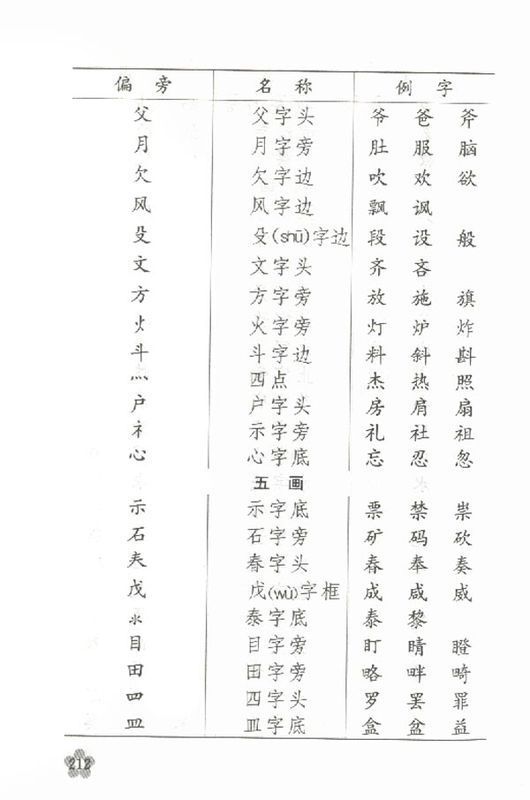 偏 旁 名 称 例 字
父 父字头 爷 爸 斧
月 月字旁 肚 服 脑
欠 欠字边 吹 欢 欲
风 风字边 飘 讽
殳 殳(shū)字边 段 设 般
文 文字头 齐 吝
方 方字旁 放 施 旗
火 火字旁 灯 炉 炸
斗 斗字边 料 斜 斟
灬 四点 杰 热 照
户 户字头 房 肩 扇
礻 示字旁 礼 社 祖
心 心字底 忘 忍 忽
五 画
示 示字底 票 禁 祟
石 石字旁 矿 码 砍
𡗗 春字头 春 奉 奏
戊 戊(wù)字框 成 咸 威
氺 泰字底 泰 黎
目 目字旁 盯 睛 瞪
田 田字旁 略 畔 畸
罒 四字头 罗 罢 罪
皿 皿字底 盒 盆 益
212